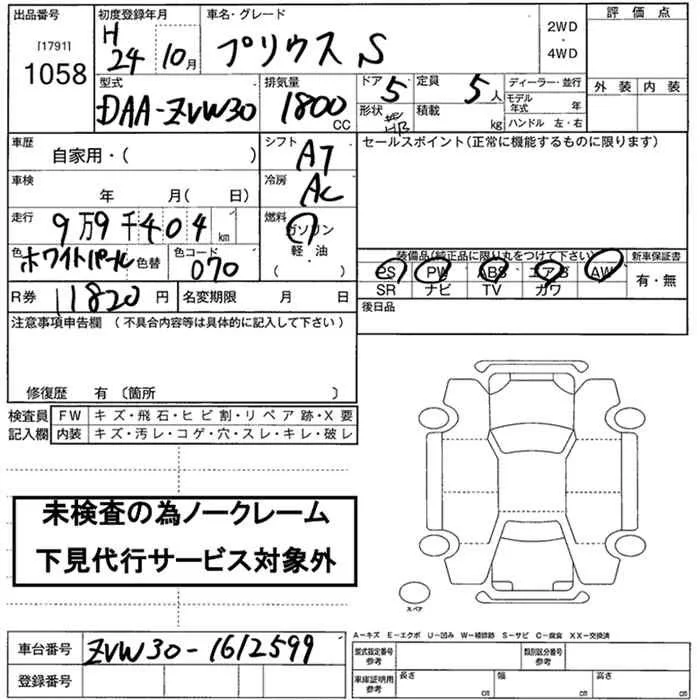 出品番号 初度登録年月 車名・グレード 評価点
[1791] 1058 H 24 10月 プリウス S 2WD ・ 4WD
型式 排気量 ドア 5 定員 5人 ディーラー・並行 外装 内装
DAA-ZVW30 1800 CC 形状 HB 積載 kg モデル年式 年
ハンドル 左・右
車歴 自家用・( ) シフト AT セールスポイント(正常に機能するものに限ります)
車検 年 月( 日) 冷房 AC
走行 9万9千404km 燃料 ガソリン
軽・油
( )
色 ホワイトパール 色替 色コード 070
装備品(純正品に限り丸をつけて下さい) 新車保証書
PS PW ABS エアB AW 有・無
SR ナビ TV ガワ
R券 11820円 名変期限 月 日 後日品
注意事項申告欄 (不具合内容等は具体的に記入して下さい)
修復歴 有 〔箇所 〕
検査員 FW キズ・飛石・ヒビ割・リペア跡・X要
記入欄 内装 キズ・汚レ・コゲ・穴・スレ・キレ・破レ
未検査の為ノークレーム
下見代行サービス対象外
スペア
A-キズ E-エクボ U-凹み W-補修跡 S-サビ C-腐食 XX-交換済
車台番号 ZVW30-1612599 型式指定番号 参考 類別区分番号 参考
登録番号 車庫証明用 参考 長さ cm 幅 cm 高さ cm